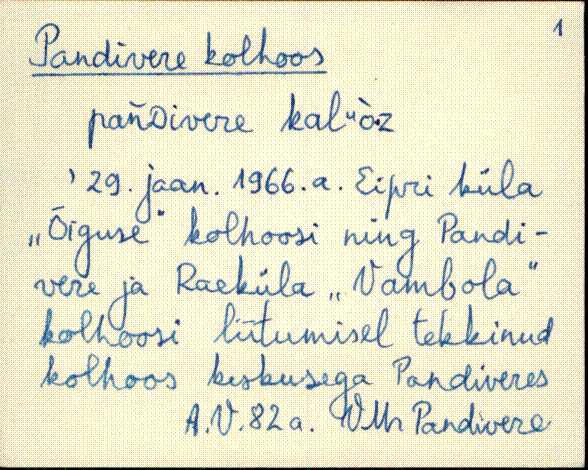 1
Pandivere kolhoos
pañDivere kal"òz
' 29. jaan. 1966.a. Eipri küla
„Õiguse" kolhoosi ning Pandi-
vere ja Raeküla „Vambola"
kolhoosi liitumisel tekkinud
kolhoos keskusega Pandiveres
A.V.82a. VMr Pandivere